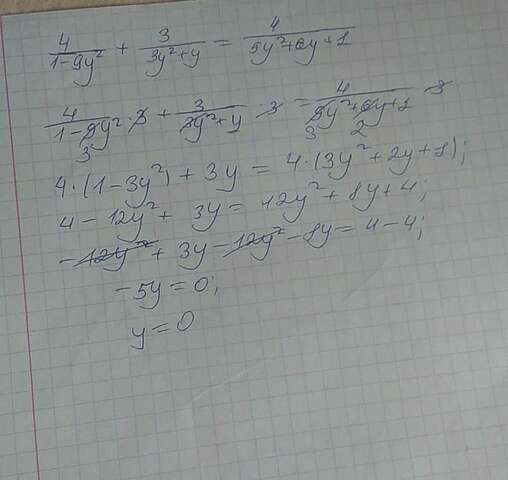 4/(1-9y²) + 3/(3y²+y) = 4/(9y²+6y+1)
4/(1-9y²) · 3 + 3/(3y²+y) · 3 = 4/(9y²+6y+1) · 3
3 3 2
4·(1-3y²) + 3y = 4·(3y²+2y+1);
4 - 12y² + 3y = 12y² + 8y + 4;
-12y² + 3y - 12y² - 8y = 4 - 4;
-5y = 0;
y = 0